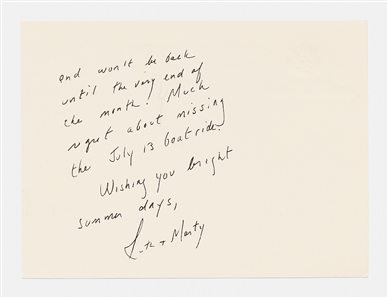 and won't be back
until the very end of
the month! Much
regret about missing
the July 13 boatride.
Wishing you bright
summer days,
Ruth + Marty